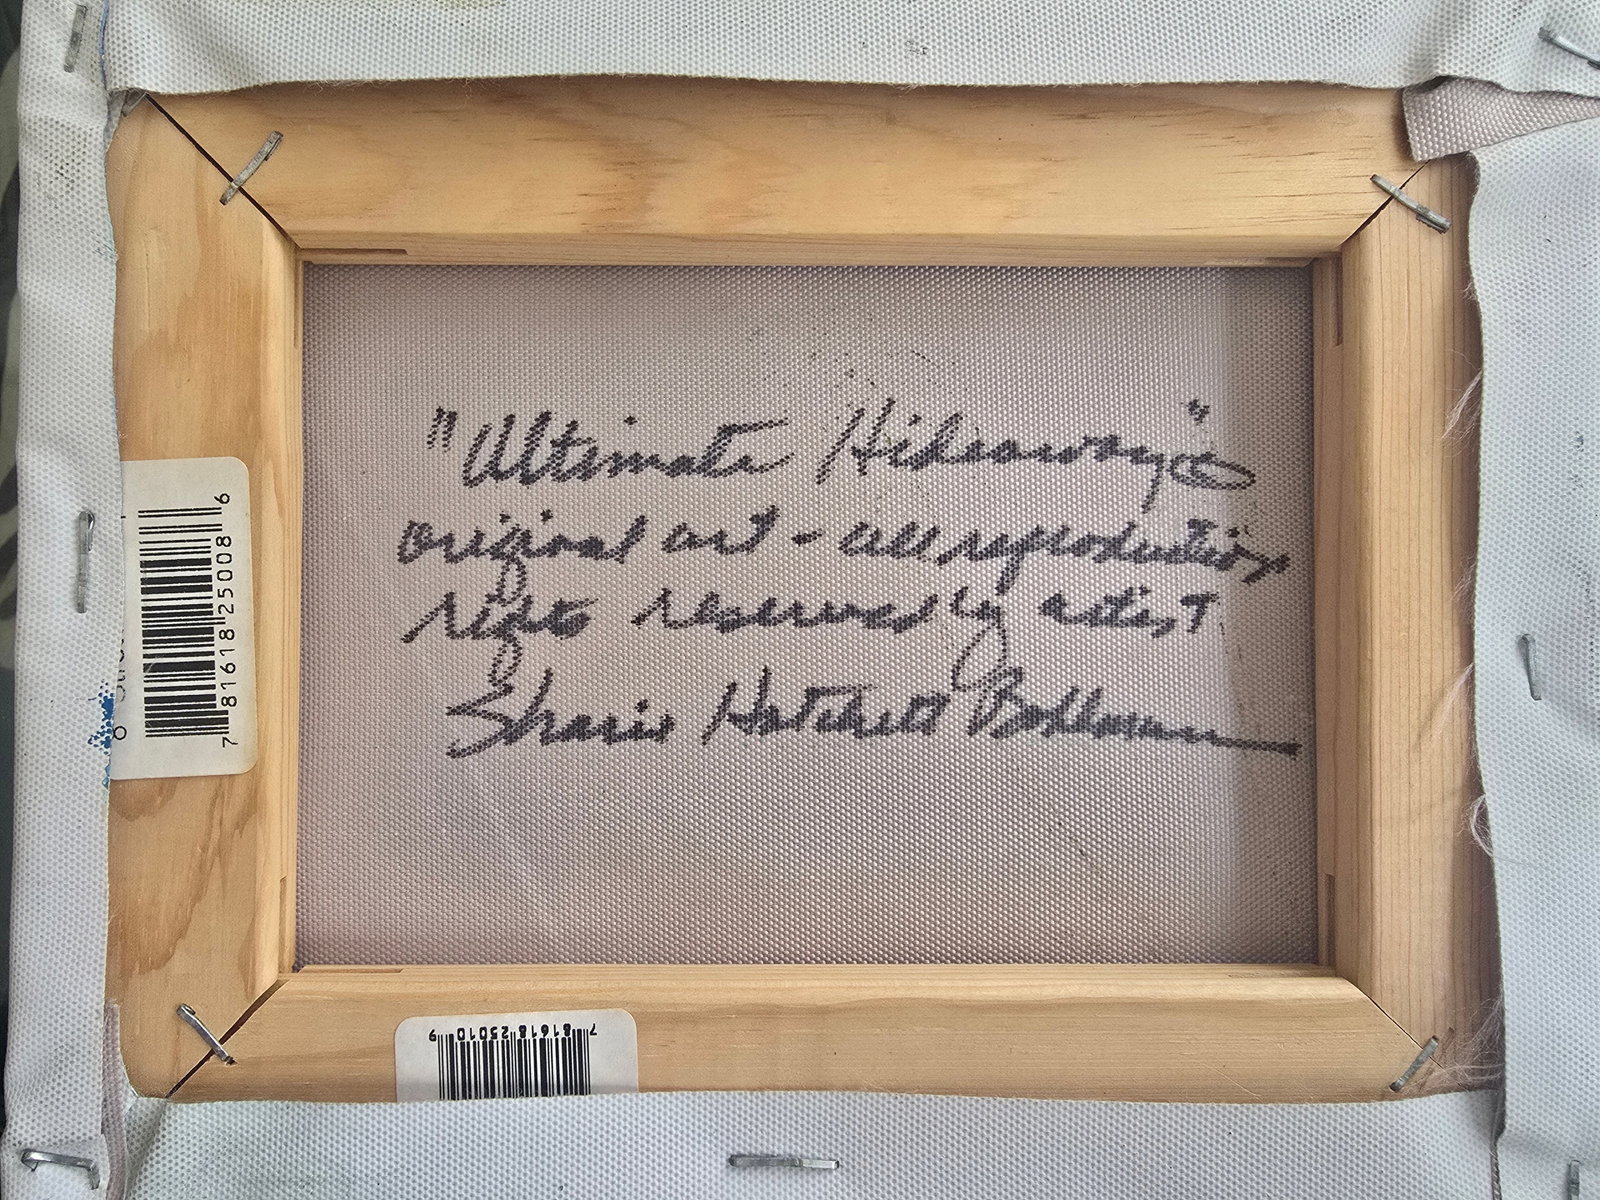 "Ultimate Hideaway"
original art - all reproduction
rights reserved by artist
Sharie Hatchett Bohlmann
7 81618 25008 6
7 81618 25010 9